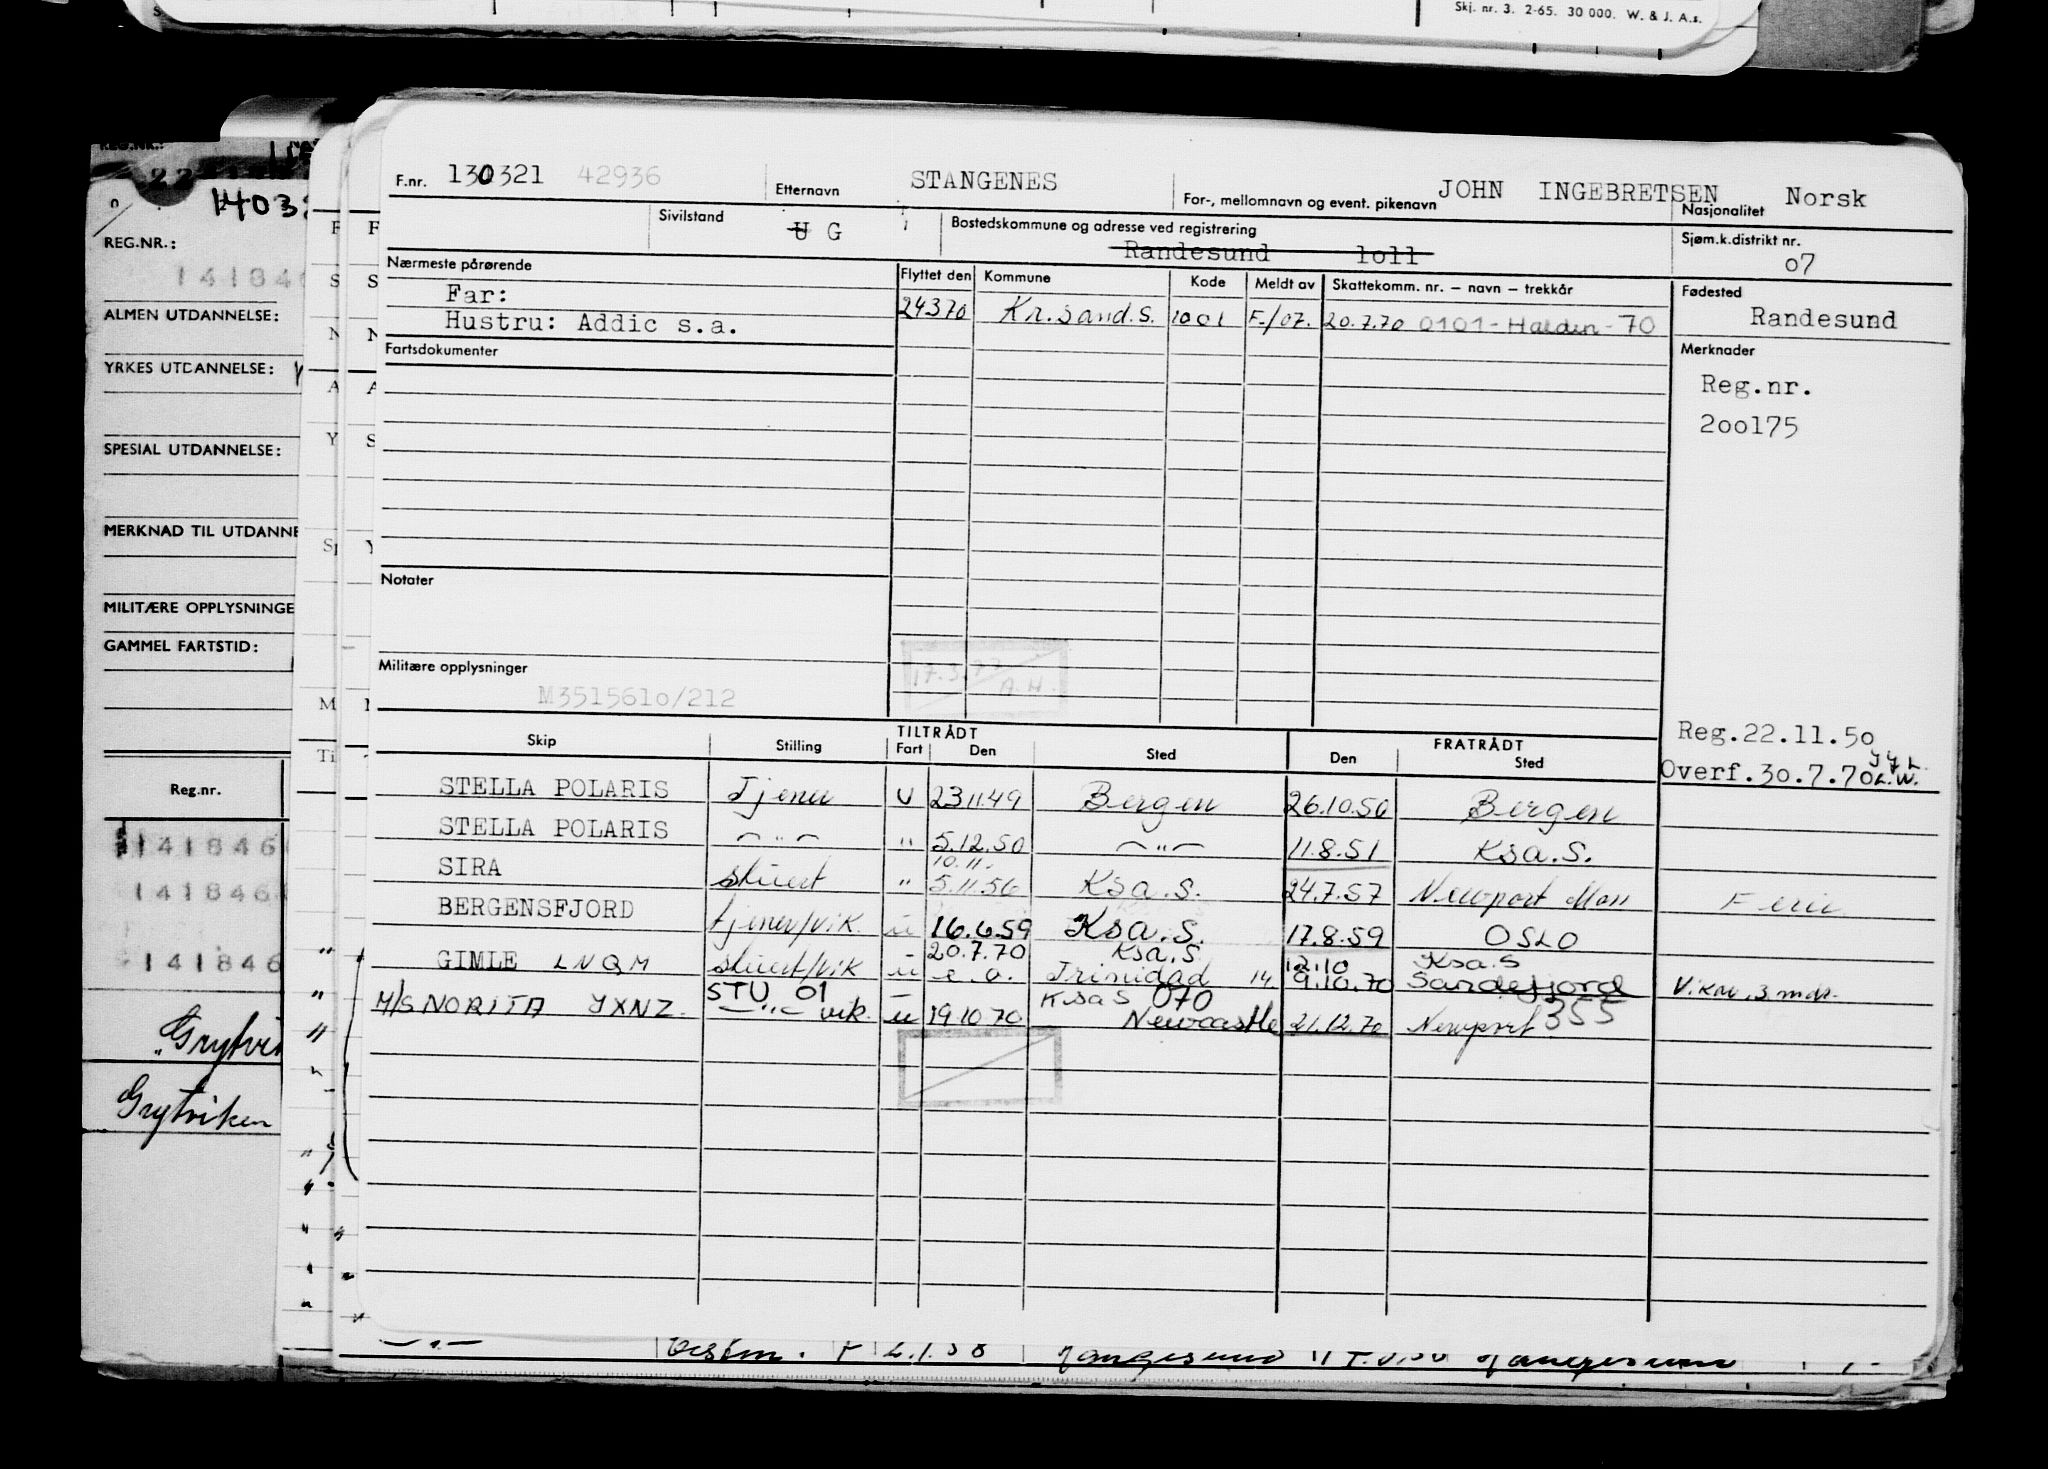 Skj. nr. 3. 2-65. 30 000. W. & J. A.s.
F.nr. 130321 42936 Etternavn STANGENES For-, mellomnavn og event. pikenavn JOHN INGEBRETSEN Nasjonalitet Norsk
Sivilstand U G Bostedskommune og adresse ved registrering Randesund 1o11 Sjøm.k.distrikt nr. o7
Nærmeste pårørende Flyttet den Kommune Kode Meldt av Skattekomm. nr. – navn – trekkår Fødested
Far: 24370 Kr.sand.S. 1001 F./07. 20.7.70 0101-Halden-70 Randesund
Hustru: Addic s.a.
Fartsdokumenter Merknader
Reg.nr.
2oo175
Notater
17.3.77 A.H.
Militære opplysninger
M351561o/212
Reg.22.11.5o
Overf.3o.7.7o L.W.
Skip Stilling TILTRÅDT Fart Den Sted FRATRÅDT Den Sted
STELLA POLARIS Tjener U 23.11.49 Bergen 26.10.50 Bergen
STELLA POLARIS — " — " 5.12.50 — " — 11.8.51 Ksa.S.
10.11.
SIRA stuert " 5.11.56 Ksa.S. 24.7.57 Newport Mon Ferie
BERGENSFJORD tjener/vik. u 16.6.59 Ksa.S. 17.8.59 OSLO
20.7.70 Ksa.S 12.10 Ksa.S
GIMLE LNQM stuert/vik u e.o. Trinidad 14 9.10.70 Sandefjord Vikar 3 mdr.
STU 01 Ksa S 070
M/S NORITA JXNZ. — " — vik. u 19.10.70 Newcastle 21.12.70 Newport 355
REG.NR.:
1403
REG.NR.:
14184
ALMEN UTDANNELSE:
YRKES UTDANNELSE:
SPESIAL UTDANNELSE:
MERKNAD TIL UTDANNE
MILITÆRE OPPLYSNINGE
GAMMEL FARTSTID:
Reg.nr.
141846
141846
141846
Grytvi
Grytviken